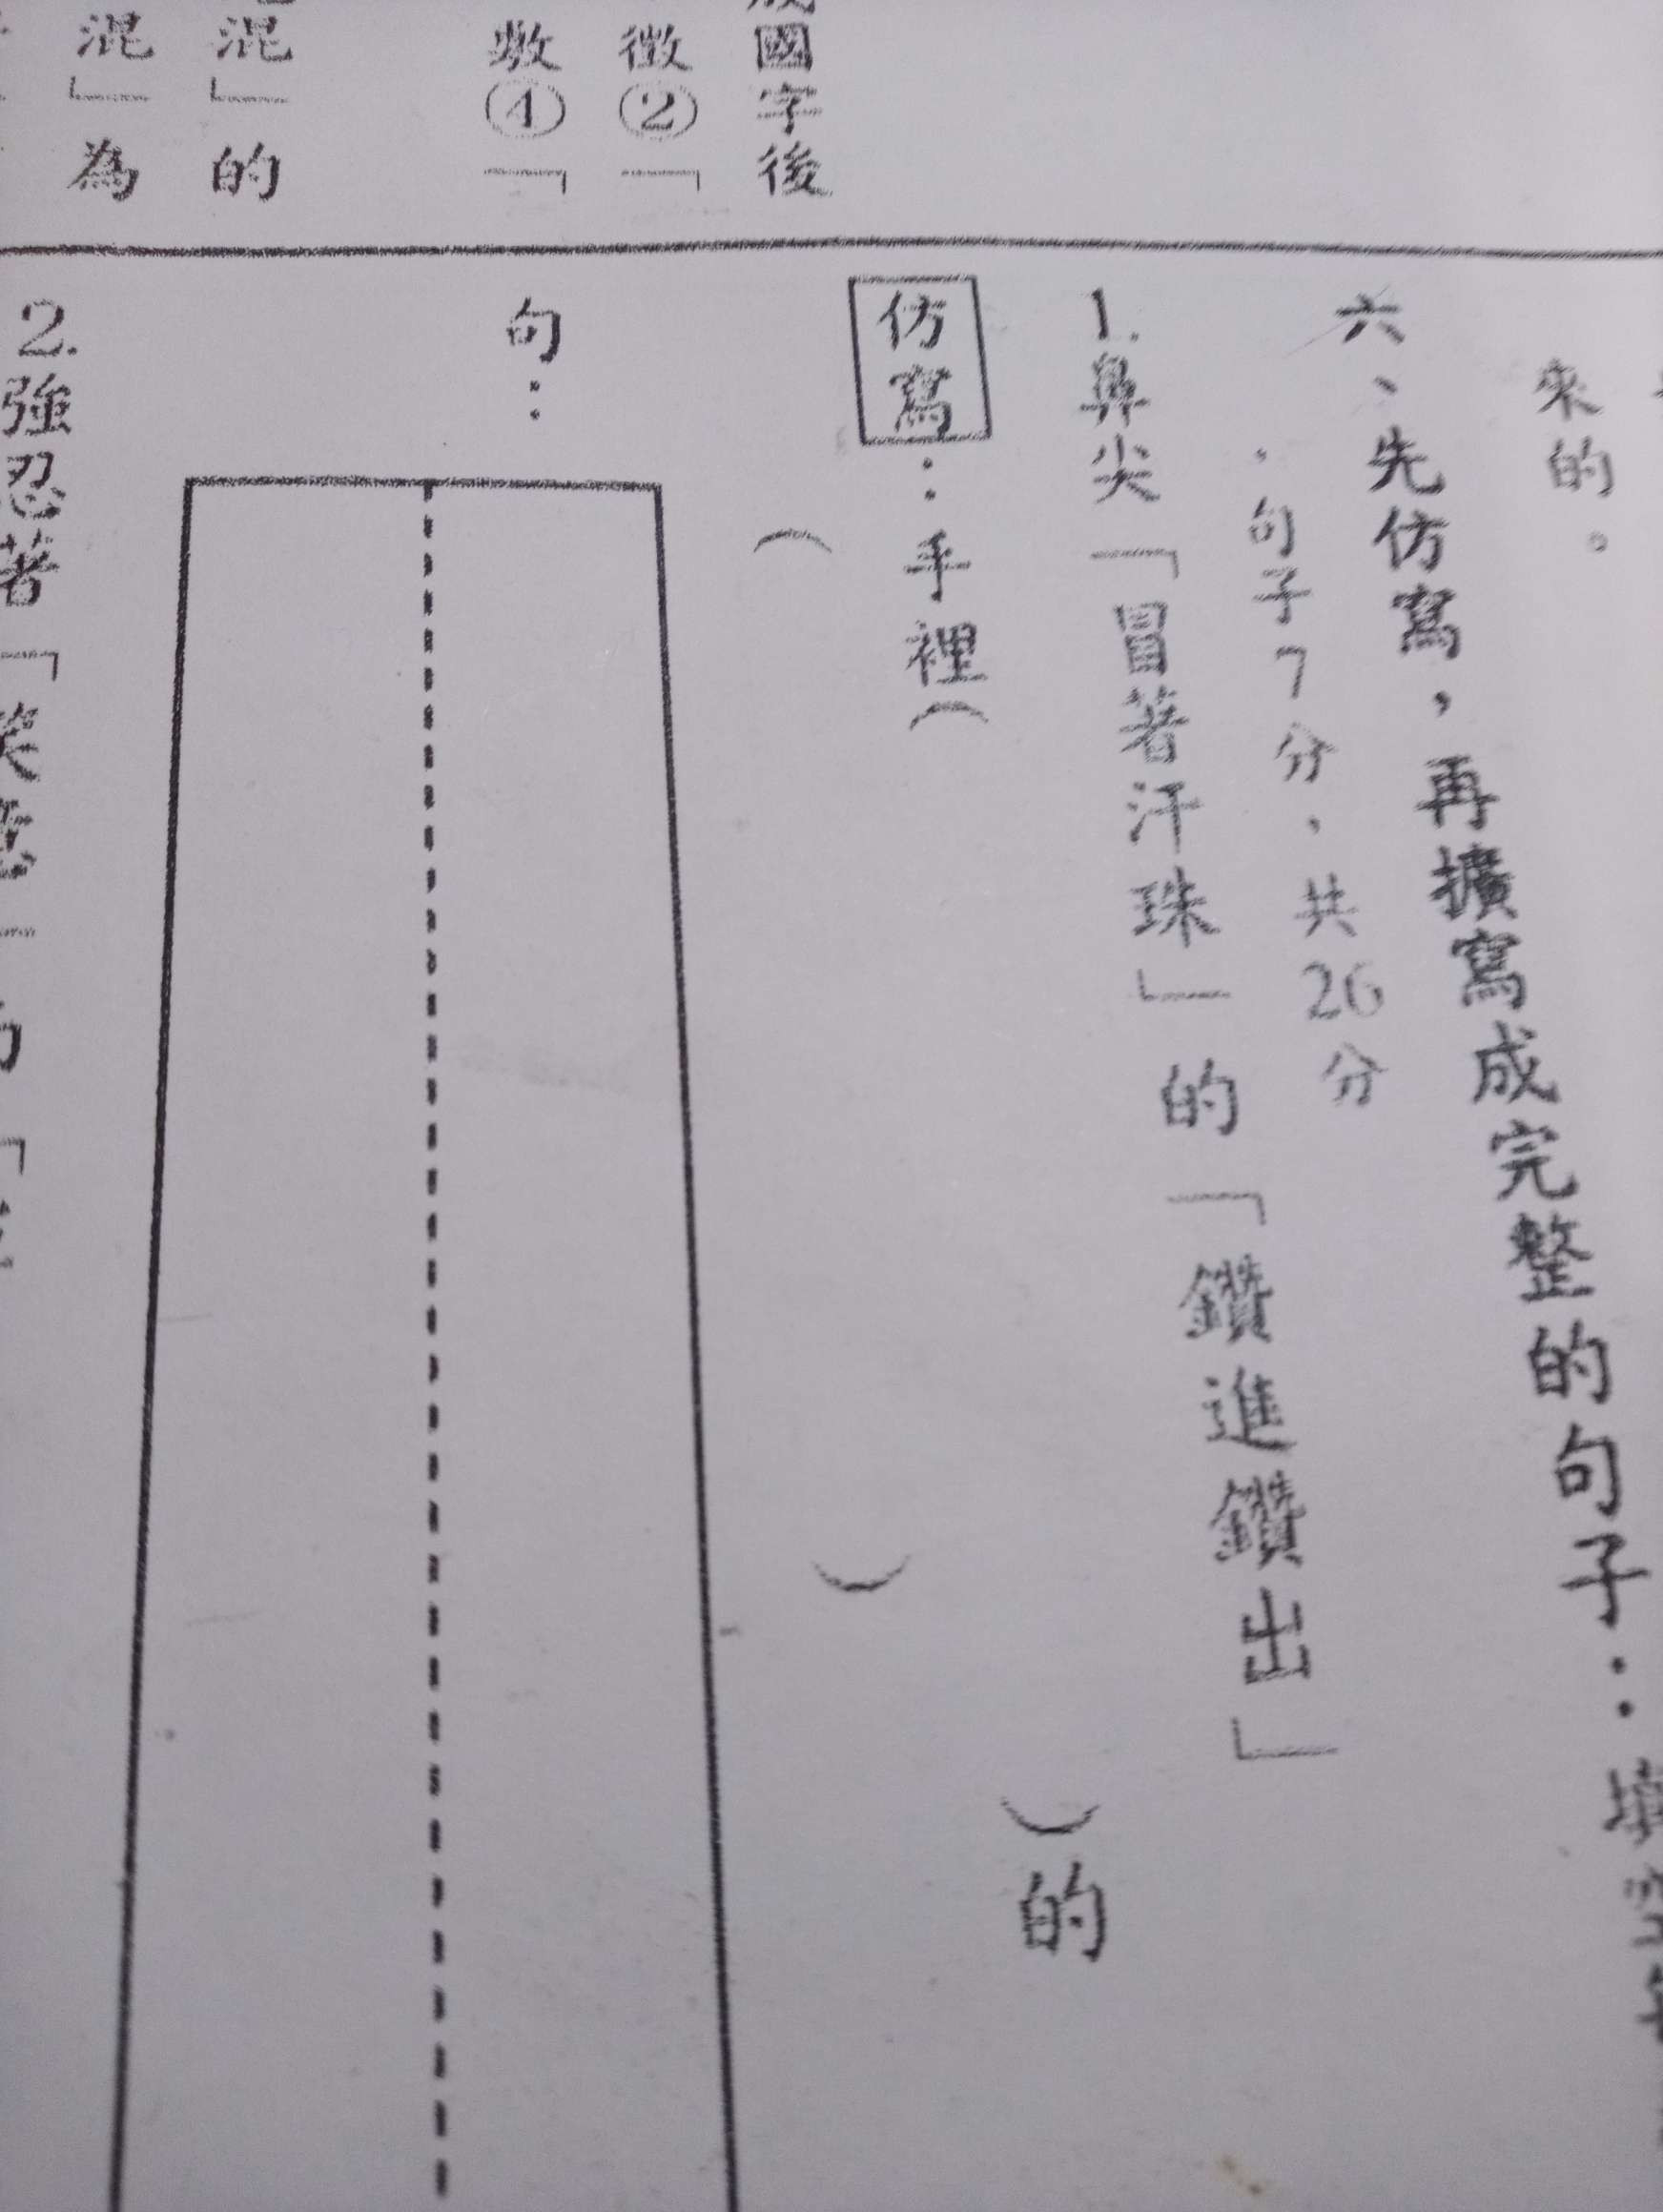 來的。
六、先仿寫，再擴寫成完整的句子：
句子7分，共26分
1.鼻尖「冒著汗珠」的「鑽進鑽出」
仿寫：手裡（　）的
（　）
句：
2.強忍著「
國字後
徵②「
數④「
混」的
混」為